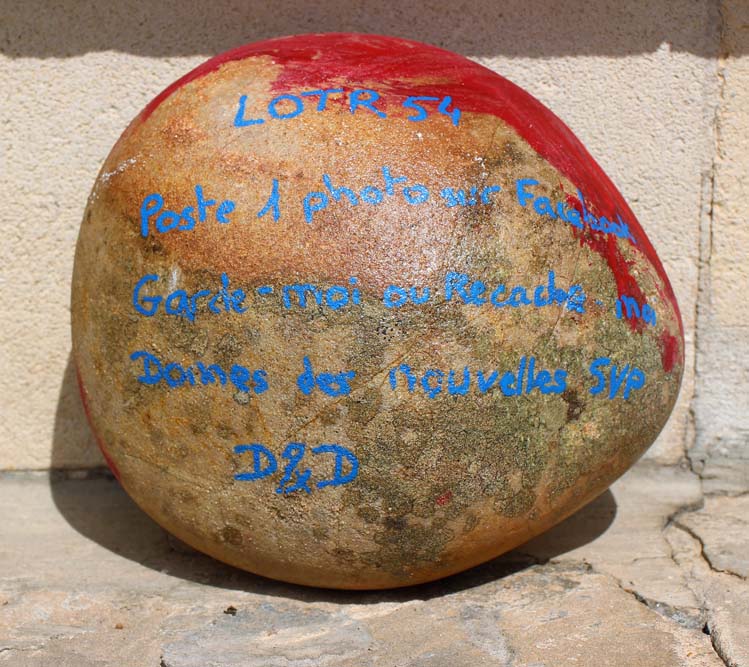 LOTR 54
Poste 1 photo sur Facebook
Garde-moi ou Recache-moi
Donnes des nouvelles SVP
D&D